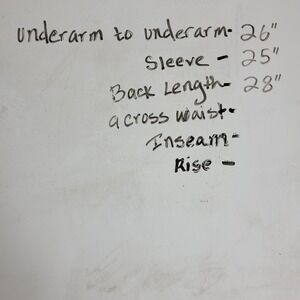 underarm to underarm- 26"
Sleeve - 25"
Back Length- 28"
across waist-
Inseam-
Rise -